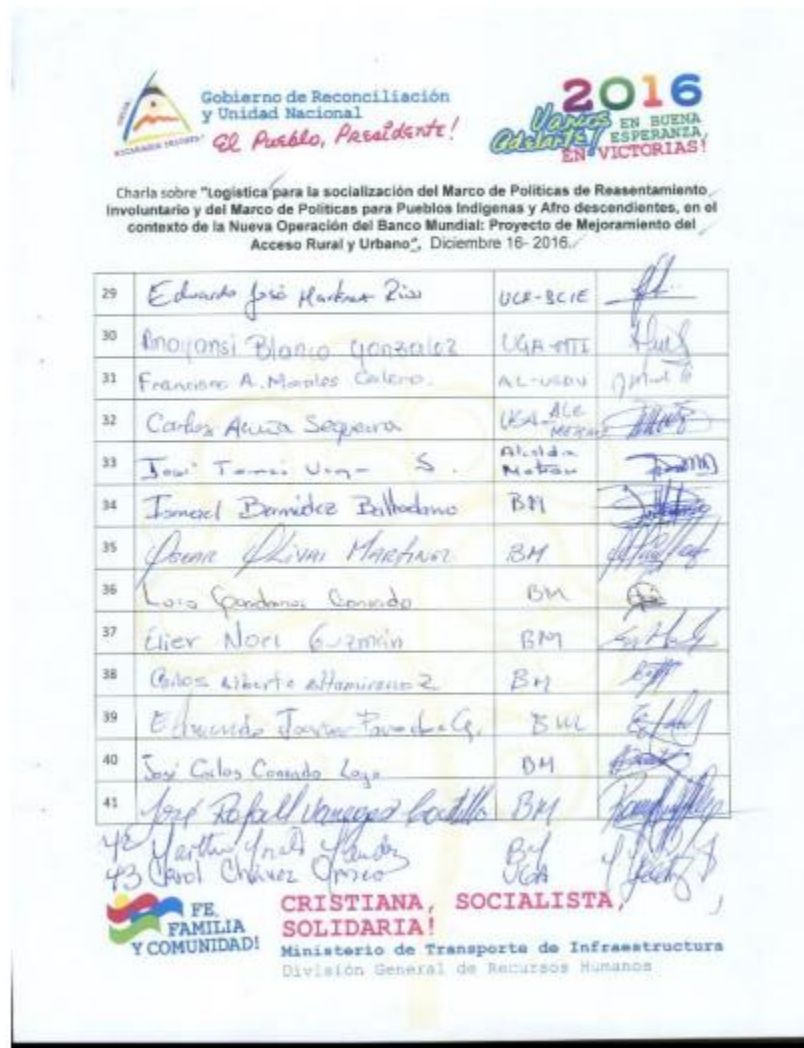 Gobierno de Reconciliación
y Unidad Nacional
El Pueblo, Presidente!
2016
Vamos Adelante!
EN BUENA
ESPERANZA,
EN VICTORIAS!
Charla sobre "Logística para la socialización del Marco de Políticas de Reasentamiento
Involuntario y del Marco de Políticas para Pueblos Indígenas y Afro descendientes, en el
contexto de la Nueva Operación del Banco Mundial: Proyecto de Mejoramiento del
Acceso Rural y Urbano", Diciembre 16- 2016.
29 Eduardo José Martínez UCR-BCIE
30 Anayansi Blanco Gonzalez UGA-MTI
31 Francisco A. Morales Calero.
32 Carlos Acuña Sequeira
33 S. Alcaldia
34 Ismael Bermúdez Baltodano BM
35 Oscar Olivas Martinez BM
36 BM
37 Elier Noel Guzmán BM
38 Carlos Alberto Altamirano BM
39
40 José Carlos BM
41 José Rafael Vanegas Castillo BM
42
43 Carol Chávez UGA
FE,
FAMILIA
Y COMUNIDAD!
CRISTIANA, SOCIALISTA,
SOLIDARIA!
Ministerio de Transporte de Infraestructura
División General de Recursos Humanos